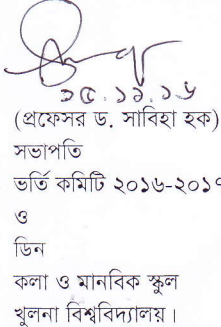 ১৫.১১.১৬
(প্রফেসর ড. সাবিহা হক)
সভাপতি
ভর্তি কমিটি ২০১৬-২০১৭
ও
ডিন
কলা ও মানবিক স্কুল
খুলনা বিশ্ববিদ্যালয়।